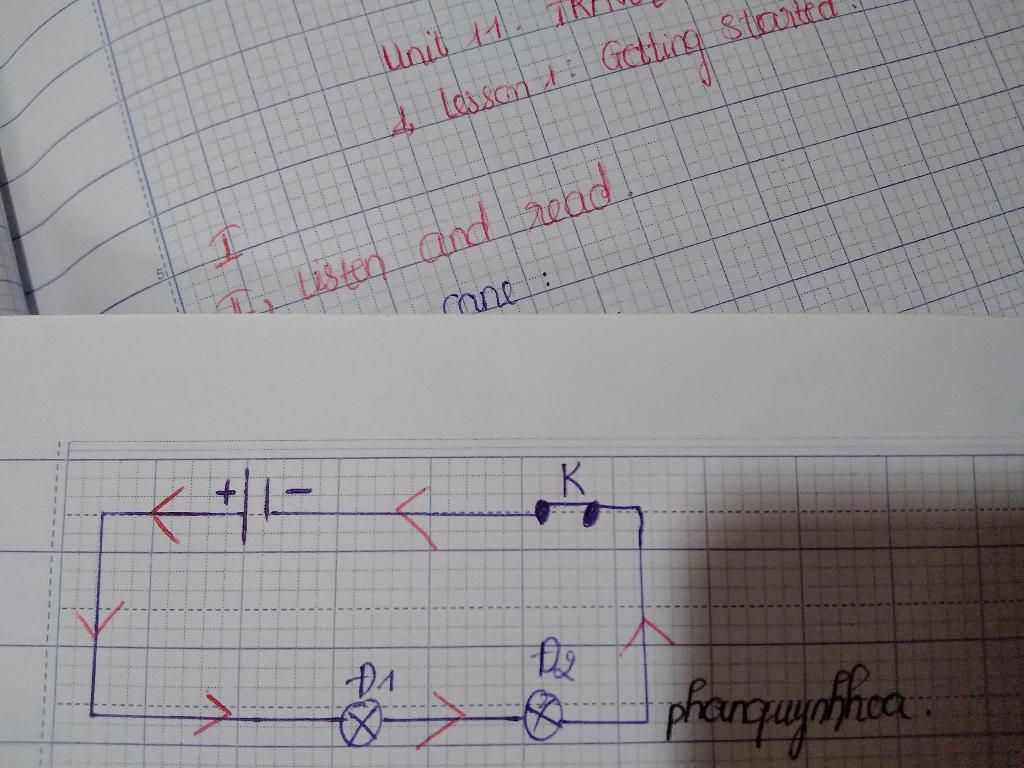 Unit 11:
1, Lesson 1: Getting Started.
I
II, Listen and read.
5
:
K
+ −
Đ1
Đ2
phanquynhhoa.